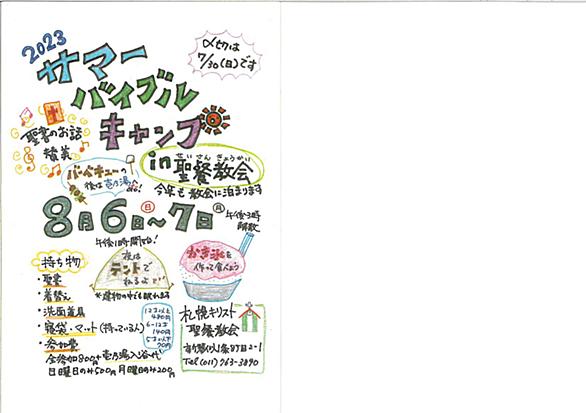 2023
サマー
バイブル
キャンプ
〆切は
7/30(日)です
聖書のお話
賛美
in 聖餐教会
せいさんきょうかい
バーベキューの
後は壱乃湯へ
Go!
今年も教会に泊まります
8月6日(日)~7日(月)
午後3時
解散
午後1時開始!
夜は
テントで
ねるよ
*建物の中でも眠れます
かき氷を
作って食べよう
持ち物
・聖書
・着替え
・洗面道具
・寝袋・マット(持っている人)
・参加費
全参加800円+壱乃湯入浴代
日曜日のみ500円 月曜日のみ200円
12才以上
480円
6-12才
140円
5才以下
70円
札幌キリスト
聖餐教会
Tel (011) 763-3890